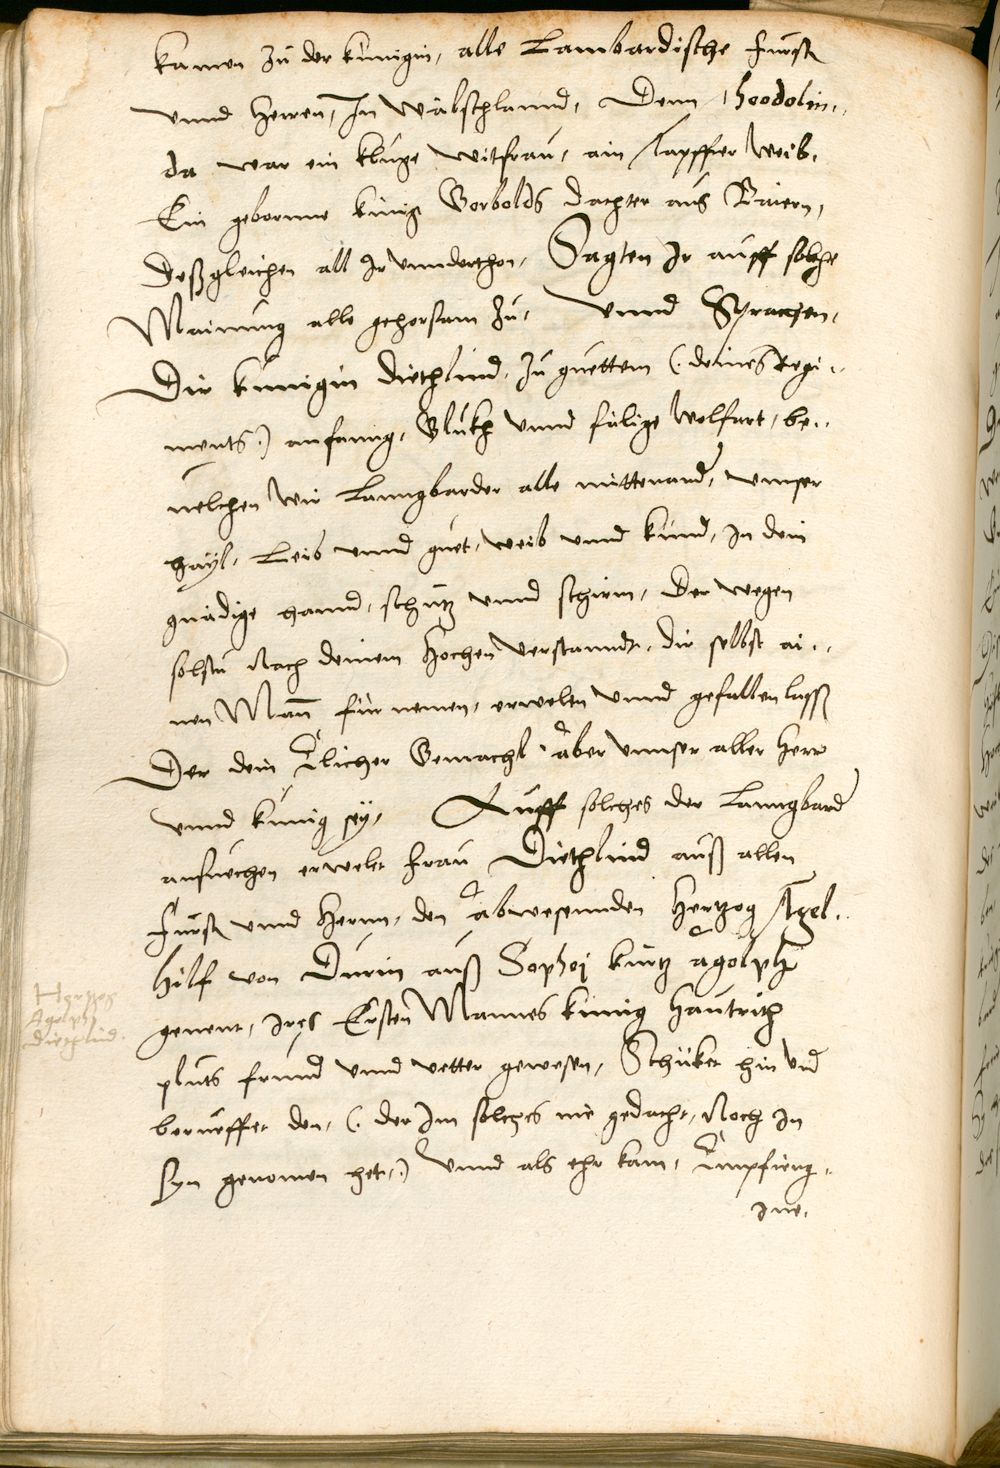 kamen zu der künigin, alle Lambardische fürst
vnnd Herren, In Wälschlannd, Denn Theodolin..
da war ein kluge witfrau, ain Tapffer Weib,
Ein geborнне künig Gorbolds dachter aus Baiern,
Deßgleichen all Ir vnnderthon, Sagten Ir auff solche
Mainung alle gehorsam zu, Vnnd Sprachen,
Dir künigin Diethlind, zu guettem (: deines Regi..
ments :) anfanng, Glükh vnnd sälige wolfart, be..
uelchen Wir Lanngbarder alle mittenand, vnnser
hayl, Leib vnnd guet, weib vnnd kind, In dein
gnädige hannd, schutz vnnd schirm, Der wegen
solstu Nach deinem Hochen verstanndt, dir selbst ai..
nen Man̄ für nemen, erwelen vnnd gefallen lassē
Der dein Elicher Gemachl, aber vnnser aller Herr
vnnd künig sey, Auff solches der Lanngbard
ansuechen erwelet frau Diethlind auß allen
fürst vnnd Herrn, den abwesennden Hertzog Agel..
hilf von Durin auß Sophoj kurtz Agolph
genent, Ires Ersten Mannes künig Hautrich
pluts freund vnnd vetter gewesen, Schüket hin vnd
berueffet den, (: der Im solches nie gedacht, Noch In
syn genomen het, :) Vnnd als ehr kam, Empfieng,
Ine,
Hertzog
Agolph
Diethlind.